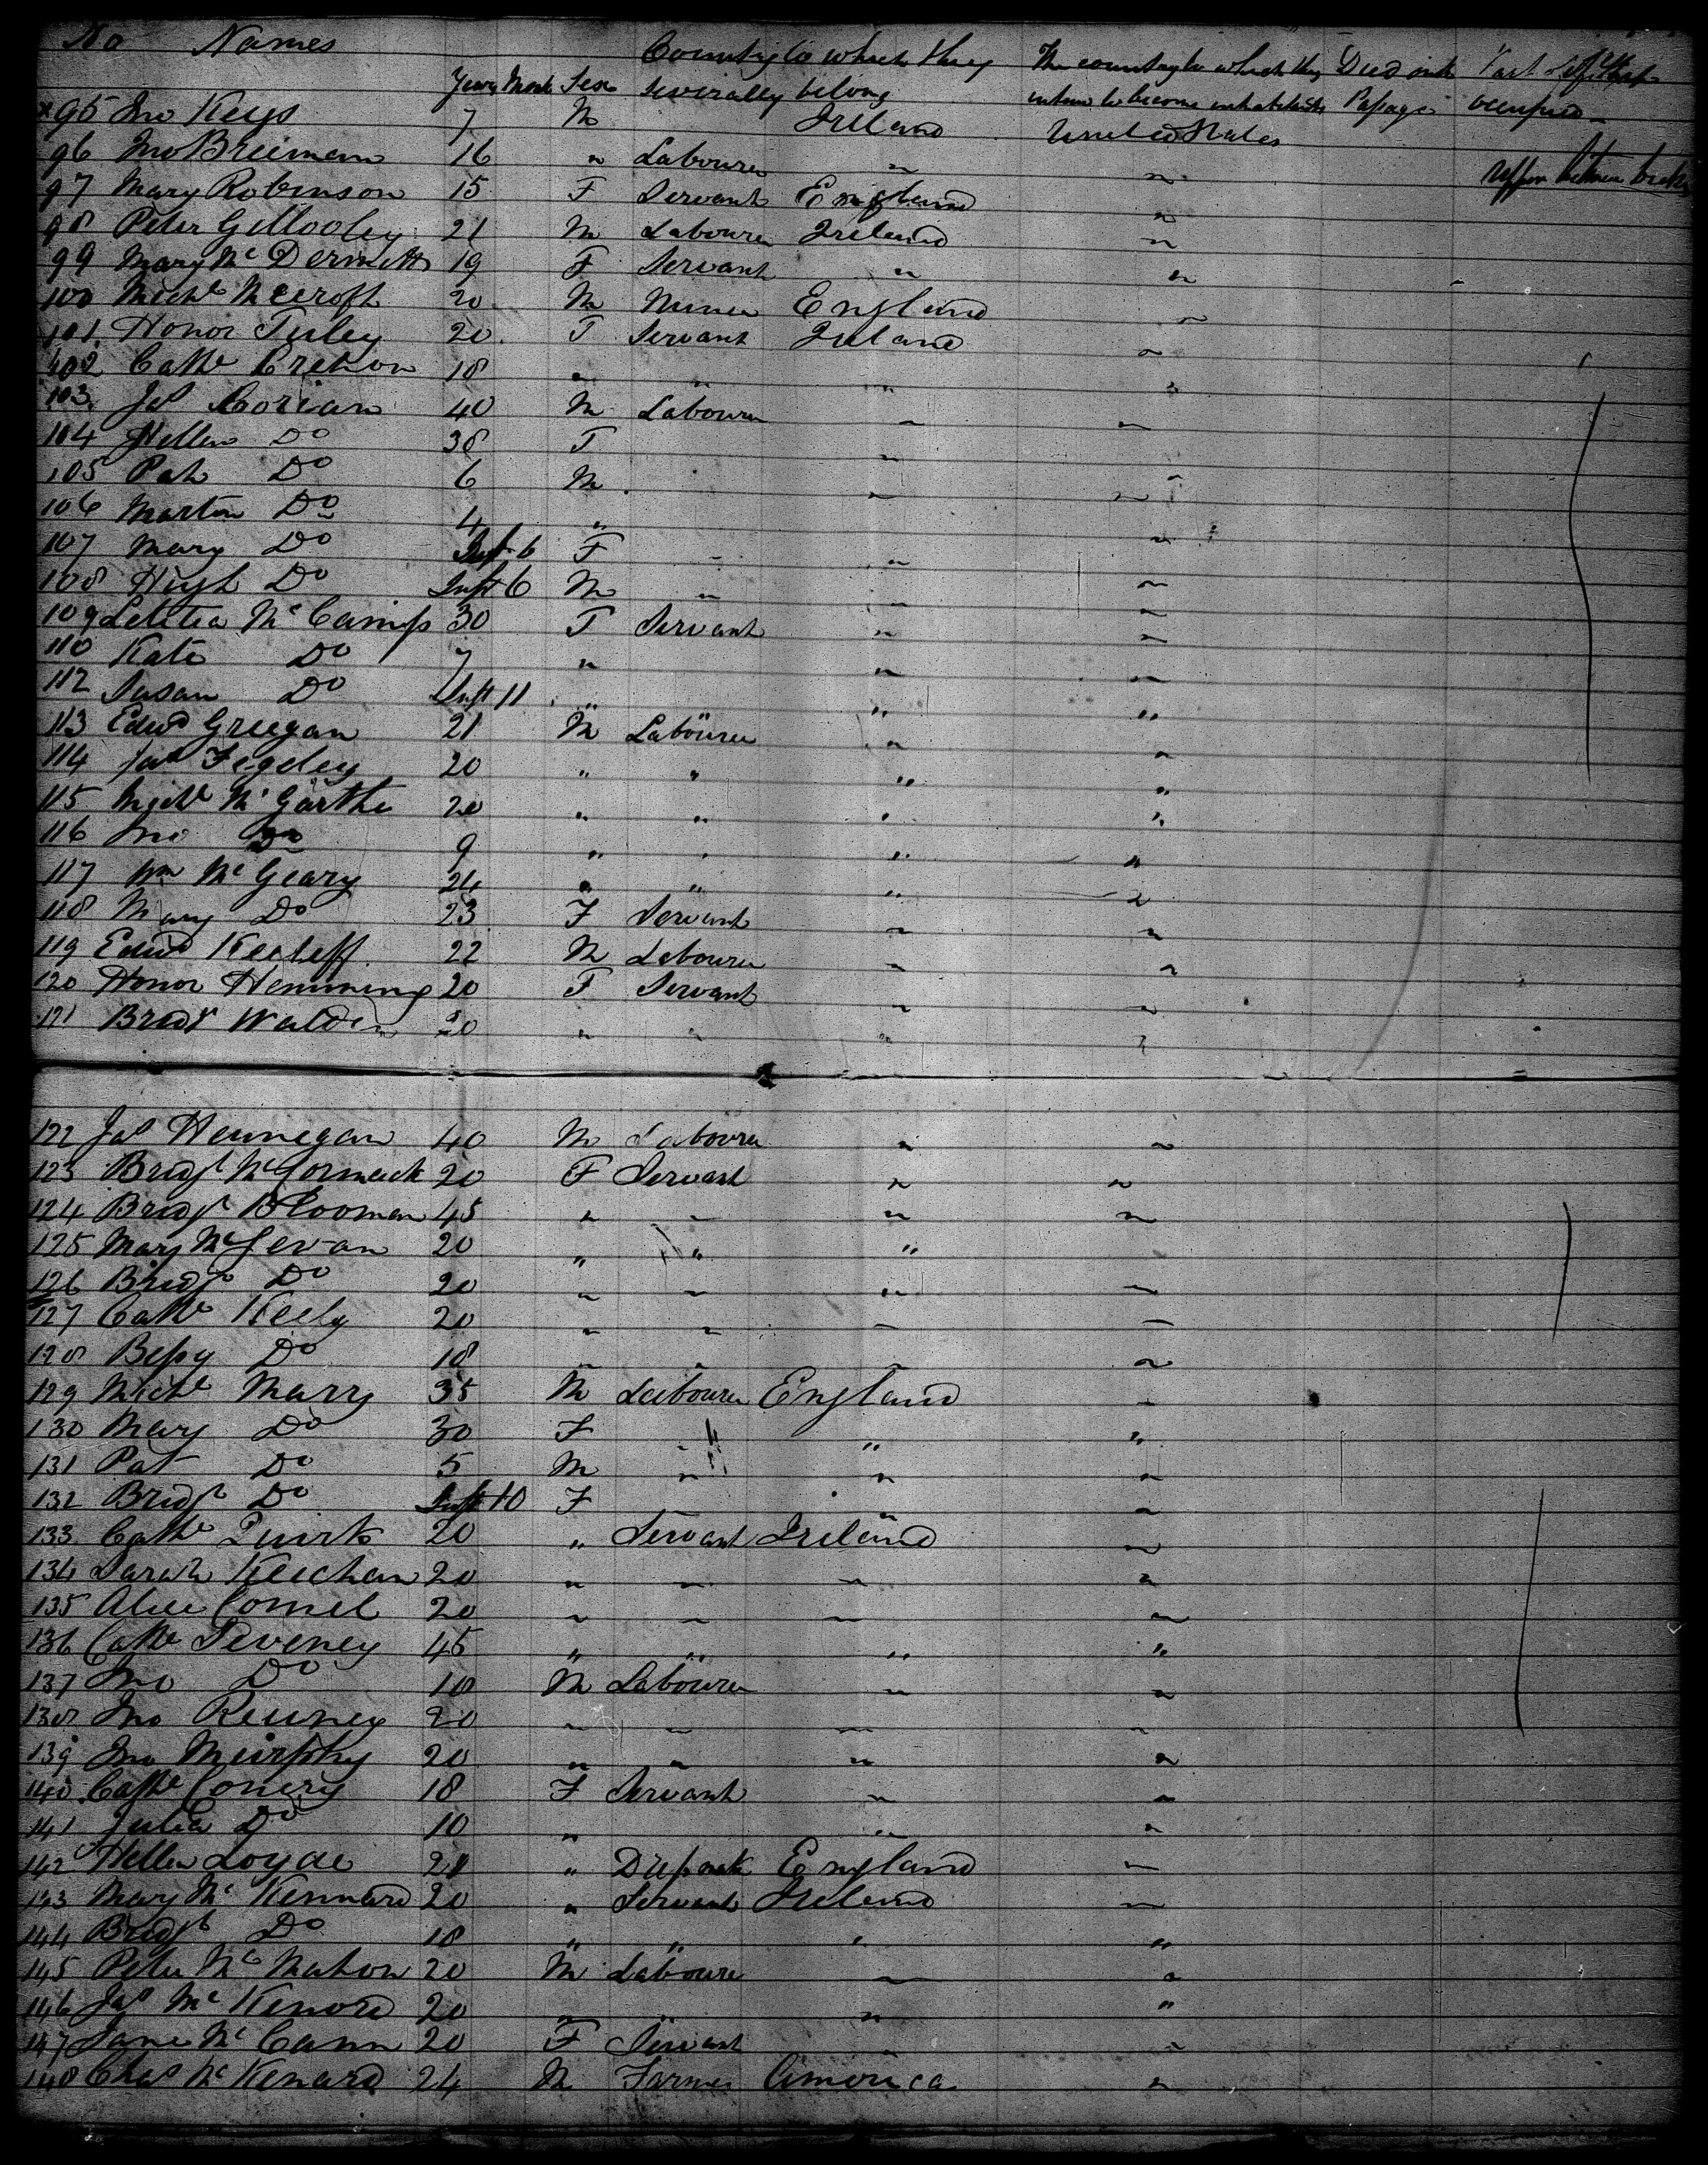 No Names Years Month Sex Country to which they severally belong The country to which they intend to become inhabitants Died on the Passage Part of the Ship occupied
95 Jno Keys 7 M Ireland United States
96 Jno 16 " Labourer " " Upper between decks
97 Mary Robinson 15 F Servant England "
98 Peter Gillooley 21 M Labourer Ireland "
99 Mary McDermott 19 F Servant " "
100 Michl 20 M Miner England "
101 Honor Turley 20 F Servant Ireland "
102 Cathe 18 " " " "
103 Jas 40 M Labourer " "
104 Hellen Do 38 F "
105 Pat Do 6 M " "
106 Martin Do 4 " "
107 Mary Do Inft 6 F " " "
108 Hugh Do Inft 6 M " " "
109 Letitia Mc 30 F Servant " "
110 Kate Do 7 " " "
112 Susan Do Inft 11 " " "
113 Edwd Greegan 21 M Labourer " "
114 Jas Fegeley 20 " " " "
115 Michl McGarthe 20 " " " "
116 Jno Do 9 " " " "
117 Wm McGeary 24 " " " "
118 Mary Do 23 F Servant " "
119 Edwd 22 M Labourer " "
120 Honor Hemming 20 F Servant " "
121 Bridt Walden 20 " " " "
122 Jas Hennegan 40 M Labourer " "
123 Bridgt McCormack 20 F Servant " "
124 Bridgt 45 " " " "
125 Mary 20 " " "
126 Bridgt Do 20 " " " "
127 Cathe Keely 20 " " " "
128 Bessy Do 18 " " " "
129 Michl Marry 35 M Labourer England "
130 Mary Do 30 F " " "
131 Pat Do 5 M " " "
132 Bridgt Do Inft 10 F " "
133 Cathe Quirk 20 " Servant Ireland "
134 Sarah Keechan 20 " " " "
135 Alice Comel 20 " " " "
136 Cathe Peveney 45 " " " "
137 Jno Do 10 M Labourer " "
138 Jno 20 " " " "
139 Jno Murphy 20 " " " "
140 Cathe Conery 18 F Servant " "
141 Julia Do 10 " " "
142 Hellen Loyde 21 " England "
143 Mary McKennard 20 " Servant Ireland "
144 Bridgt Do 18 " " " "
145 Peter McMahon 20 M Labourer " "
146 Jas McKenord 20 " " " "
147 Jane McCann 20 F Servant " "
148 Chas McKenard 24 M Farmer America "